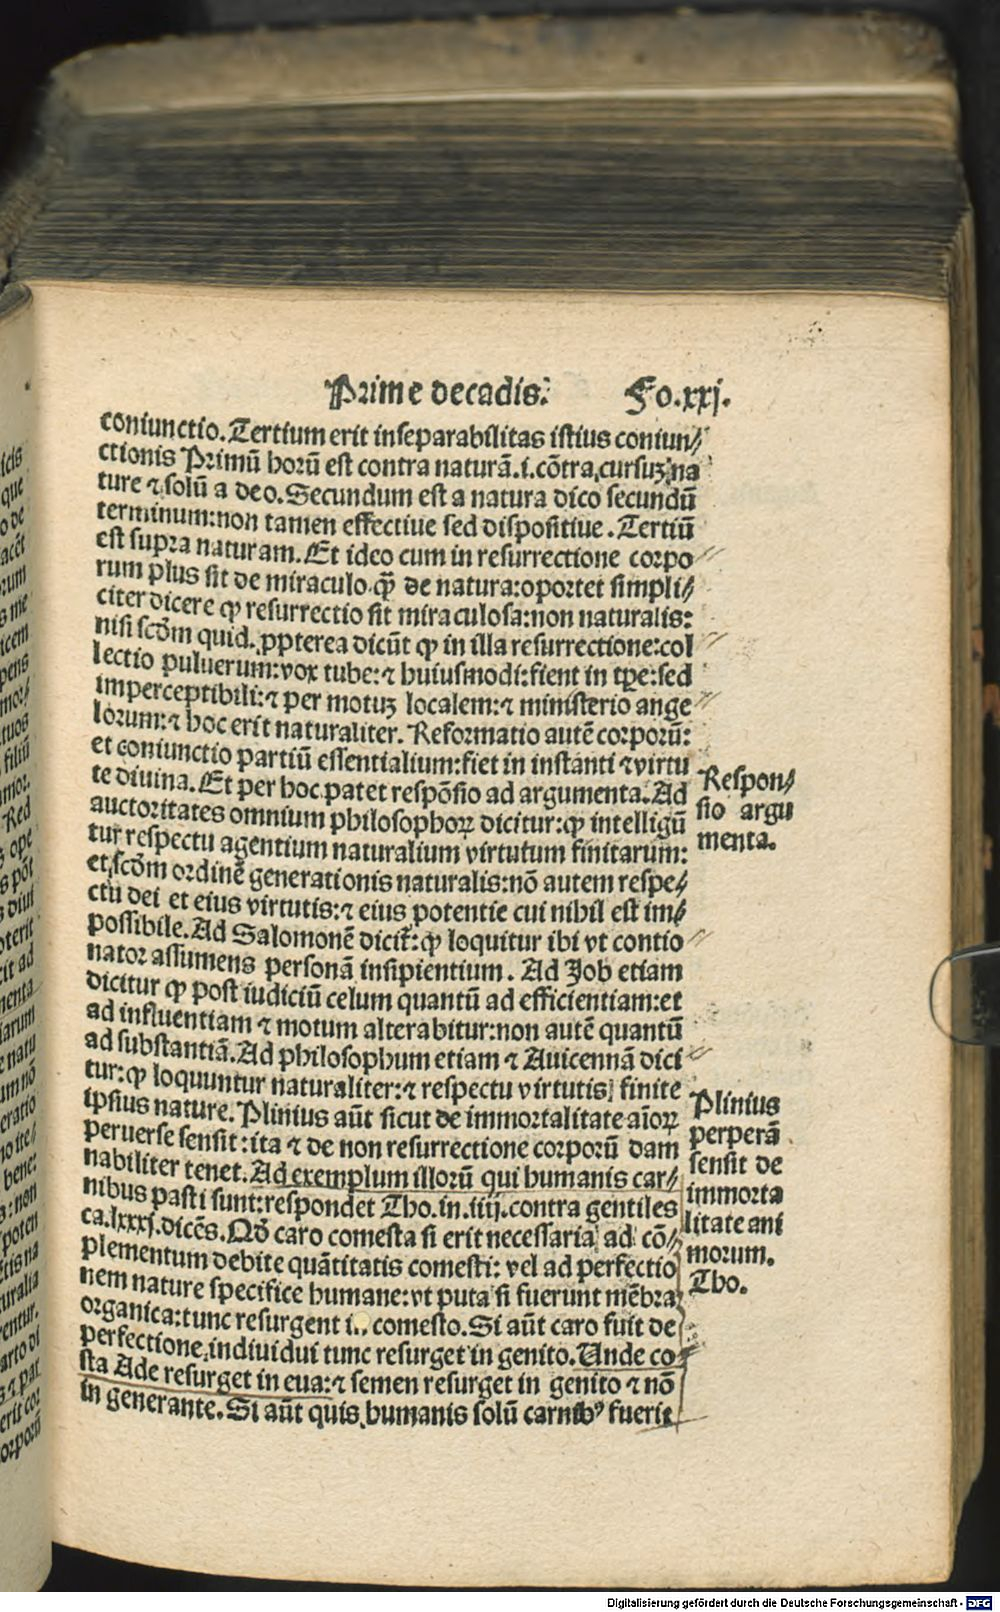 Prime decadis. Fo.xxj.
coniunctio. Tertium erit inseparabilitas istius coniun⸗
ctionis Primū horū est contra naturā.i.cōtra cursuꝫ na
ture ⁊ solū a deo. Secundum est a natura dico secundū
terminum: non tamen effectiue sed dispositiue. Tertiū
est supra naturam. Et ideo cum in resurrectione corpo
rum plus sit de miraculo. ꝙ̃ de natura: oportet simpli⸗
citer dicere ꝙ resurrectio sit miraculosa: non naturalis:
nisi scḋm quid. ꝓpterea dicūt ꝙ in illa resurrectione: col
lectio puluerum: vox tube: ⁊ huiusmodi: fient in tꝑe: sed
imperceptibili: ⁊ per motuꝫ localem: ⁊ ministerio ange
lorum: ⁊ hoc erit naturaliter. Reformatio autē corporū:
et coniunctio partiū essentialium: fiet in instanti ⁊ virtu
te diuina. Et per hoc patet respōsio ad argumenta. Ad
auctoritates omnium philosophoꝝ dicitur: ꝙ intelligū
tur respectu agentium naturalium virtutum finitarum:
et scḋm ordinē generationis naturalis: nō autem respe⸗
ctu dei et eius virtutis: ⁊ eius potentie cui nihil est im⸗
possibile. Ad Salomonē dicit̃: ꝙ loquitur ibi vt contio
nator assumens personā insipientium. Ad Job etiam
dicitur ꝙ post iudiciū celum quantū ad efficientiam: et
ad influentiam ⁊ motum alterabitur: non autē quantū
ad substantiā. Ad philosophum etiam ⁊ Auicennā dici
tur: ꝙ loquuntur naturaliter: ⁊ respectu virtutis finite
ipsius nature. Plinius aūt sicut de immortalitate aīoꝝ
peruerse sensit: ita ⁊ de non resurrectione corporū dam
nabiliter tenet. Ad exemplum illorū qui humanis car⸗
nibus pasti sunt: respondet Tho. in .iiij. contra gentiles
ca.lxxxj. dicēs. Nō caro comesta si erit necessaria ad cō⸗
plementum debite quātitatis comesti: vel ad perfectio
nem nature specifice humane: vt puta si fuerunt mēbra
organica: tunc resurgent i. comesto. Si aūt caro fuit de
perfectione indiuidui tunc resurget in genito. Unde co⸗
sta Ade resurget in eua: ⁊ semen resurget in genito ⁊ nō
in generante. Si aūt quis humanis solū carnibꝰ fuerit
Respon⸗
sio argu
menta.
Plinius
perperā
sensit de
immorta
litate ani
morum.
Tho.
Digitalisierung gefördert durch die Deutsche Forschungsgemeinschaft - DFG